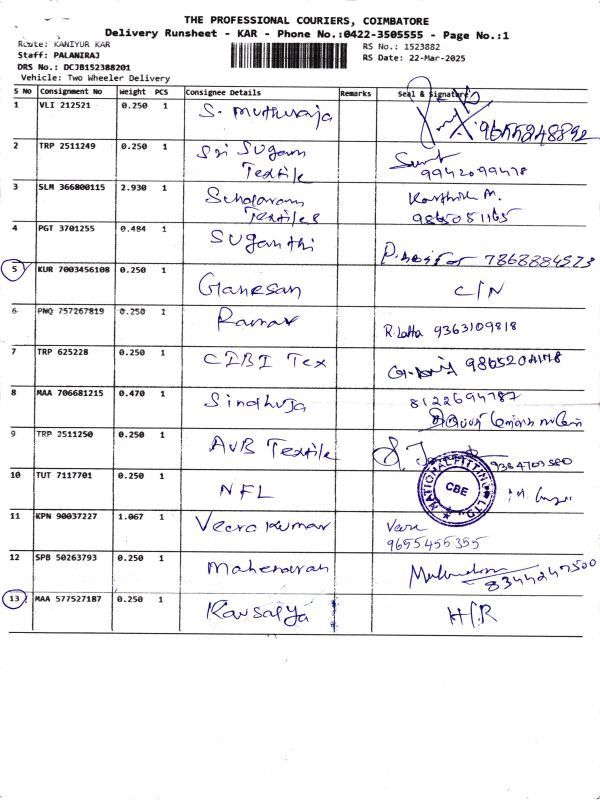 THE PROFESSIONAL COURIERS, COIMBATORE
Delivery Runsheet - KAR - Phone No.:0422-3505555 - Page No.:1
Route: KANIYUR KAR
RS No.: 1523882
Staff: PALANIRAJ
RS Date: 22-Mar-2025
DRS No.: DCJB152388201
Vehicle: Two Wheeler Delivery
S No Consignment No Weight PCS Consignee Details Remarks Seal & Signature
1 VLI 212521 0.250 1 S. Muthuraja 9655248892
2 TRP 2511249 0.250 1 Sri Sugam
Textile 9942099478
3 SLM 366800115 2.930 1 Karthik M.
Textiles 9865051165
4 PGT 3701255 0.484 1 Suganthi 7868884523
5 KUR 7003456108 0.250 1 Ganesan C/N
6 PNQ 757267819 0.250 1 Raman R. Latha 9363109818
7 TRP 625228 0.250 1 CIBI Tex
8 MAA 706681215 0.470 1 Sindhuja 8122694787
9 TRP 2511250 0.250 1 AVB Textile
10 TUT 7117701 0.250 1 NFL NATIONAL FITTING LTD. CBE
11 KPN 90037227 1.067 1 Veera Kumar Veera
9655455355
12 SPB 50263793 0.250 1 8344247500
13 MAA 577527187 0.250 1 Kausalya H/R